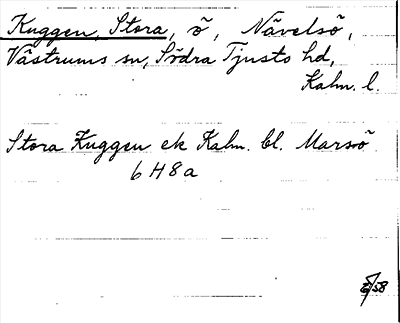 Kuggen, Stora, ö, Nävelsö,
Västrums sn, Södra Tjusts hd,
Kalm. l.
Stora Kuggen ek Kalm. bl. Marsö
6H8a
58